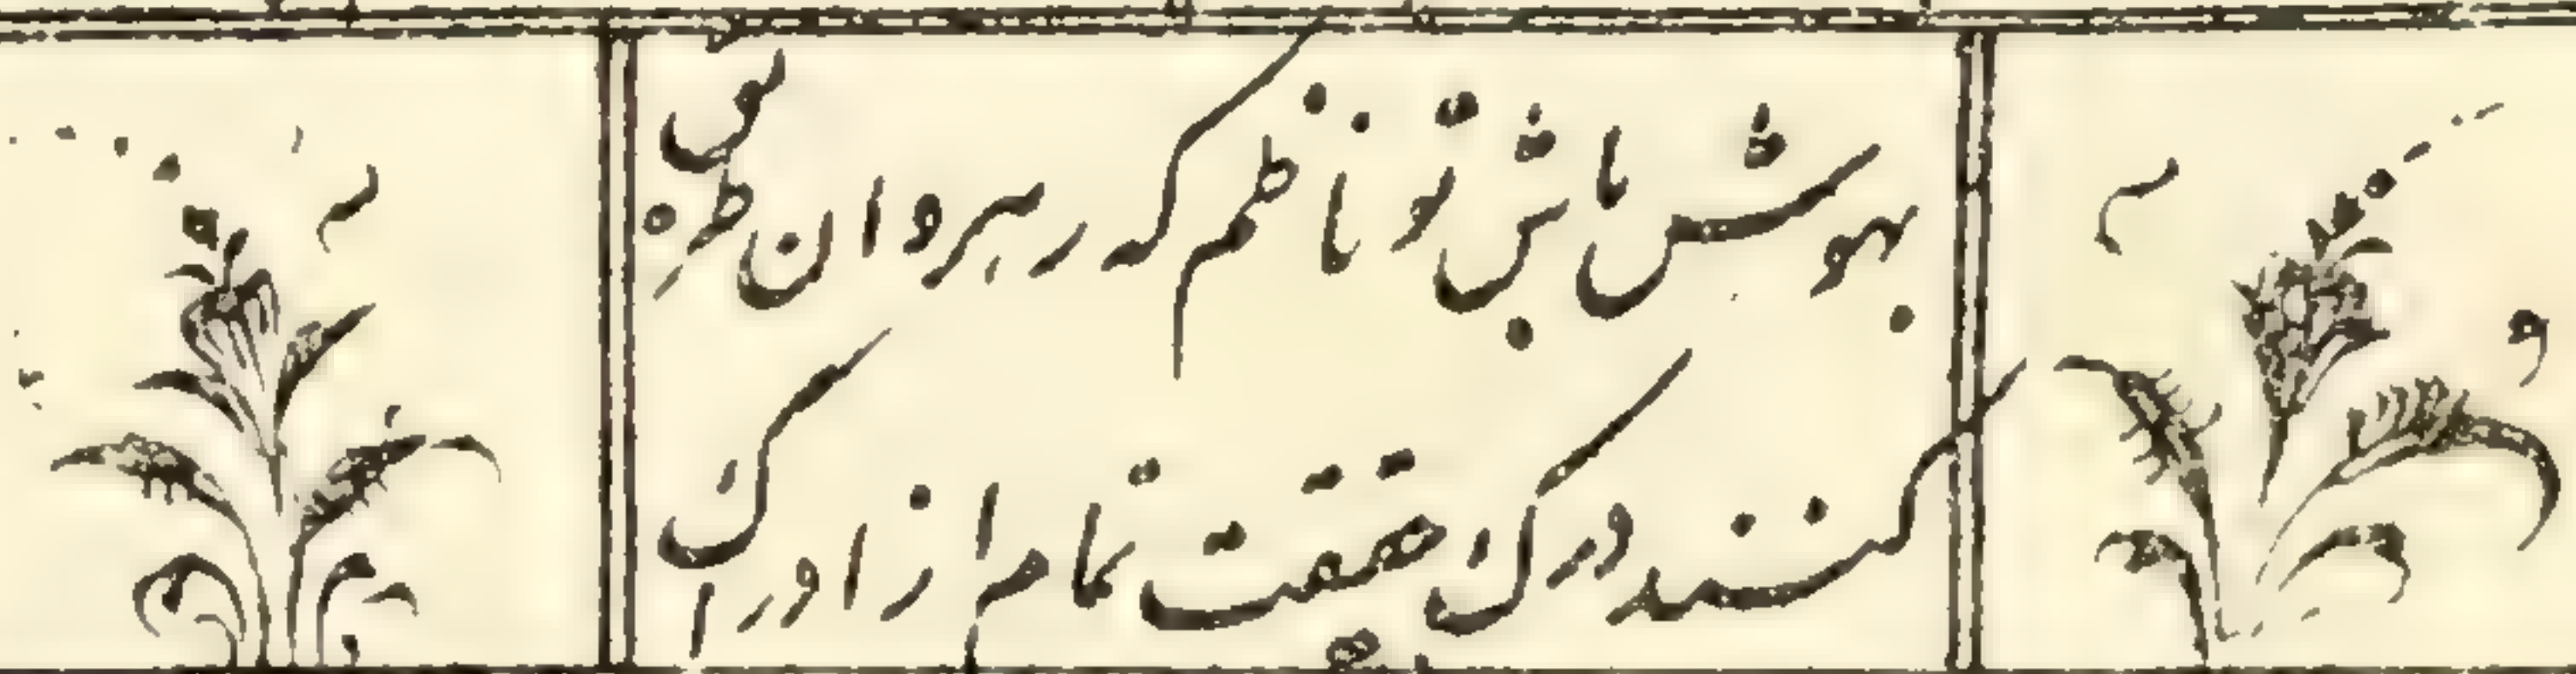 بہوش باش تو ناظم کہ رہروان طریق
کنند درک حقیقت تمام از ادراک